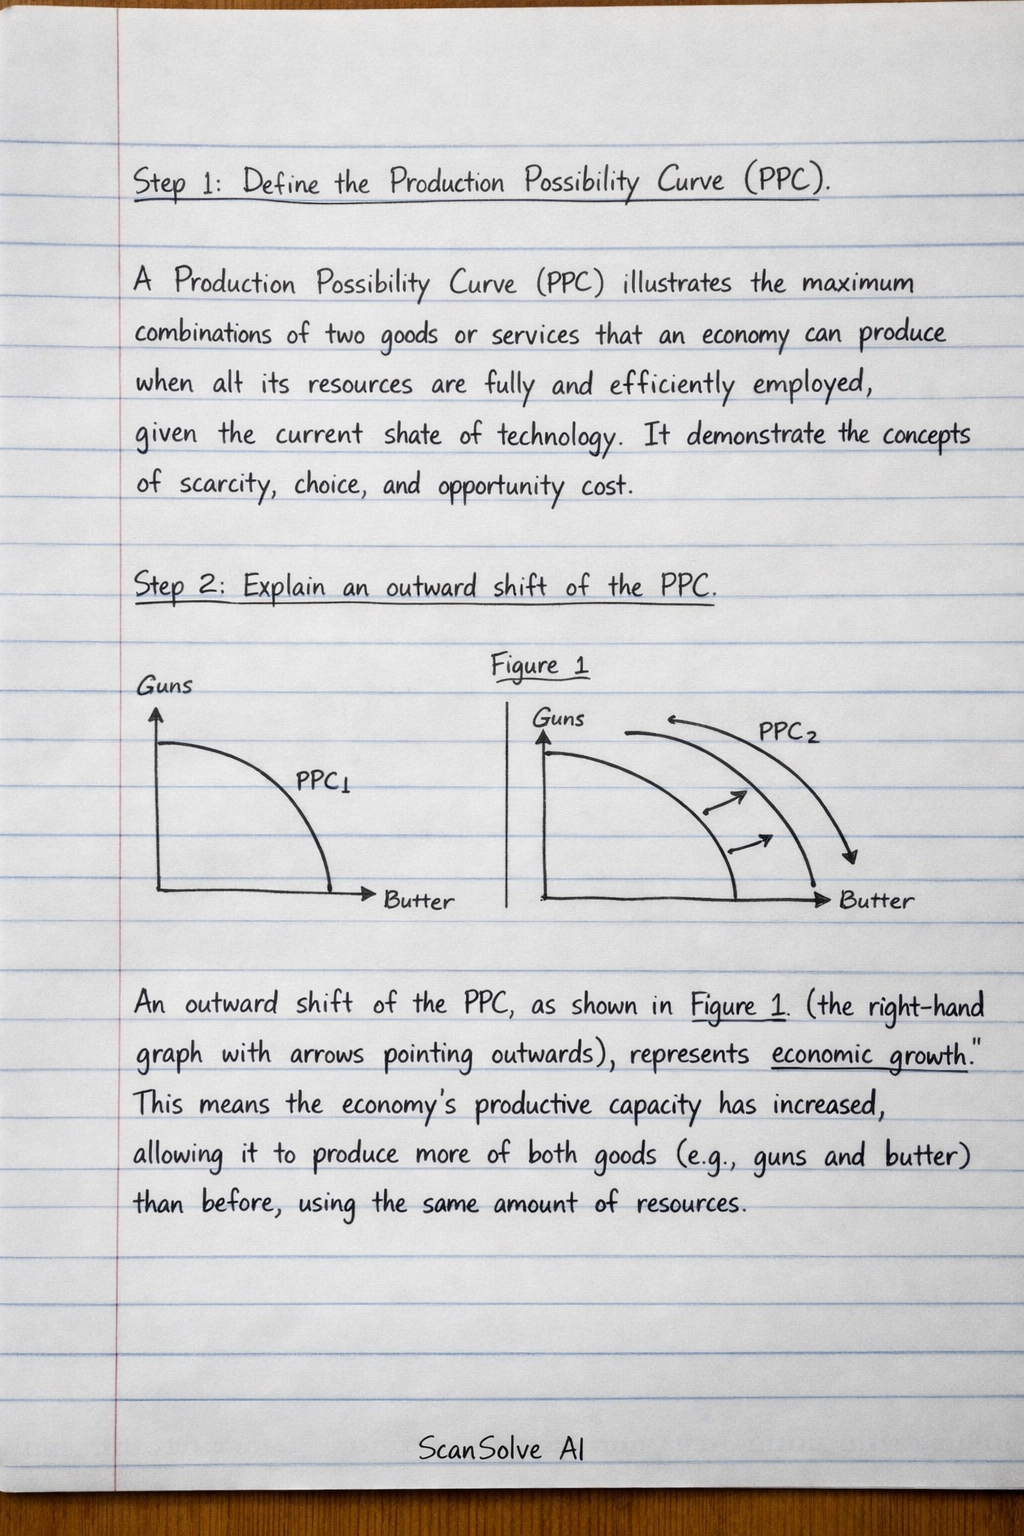 Step 1: Define the Production Possibility Curve (PPC).
A Production Possibility Curve (PPC) illustrates the maximum
combinations of two goods or services that an economy can produce
when alt its resources are fully and efficiently employed,
given the current shate of technology. It demonstrate the concepts
of scarcity, choice, and opportunity cost.
Step 2: Explain an outward shift of the PPC.
Figure 1
Guns
PPC1
Butter
Guns
PPC2
Butter
An outward shift of the PPC, as shown in Figure 1. (the right-hand
graph with arrows pointing outwards), represents economic growth."
This means the economy's productive capacity has increased,
allowing it to produce more of both goods (e.g., guns and butter)
than before, using the same amount of resources.
ScanSolve AI